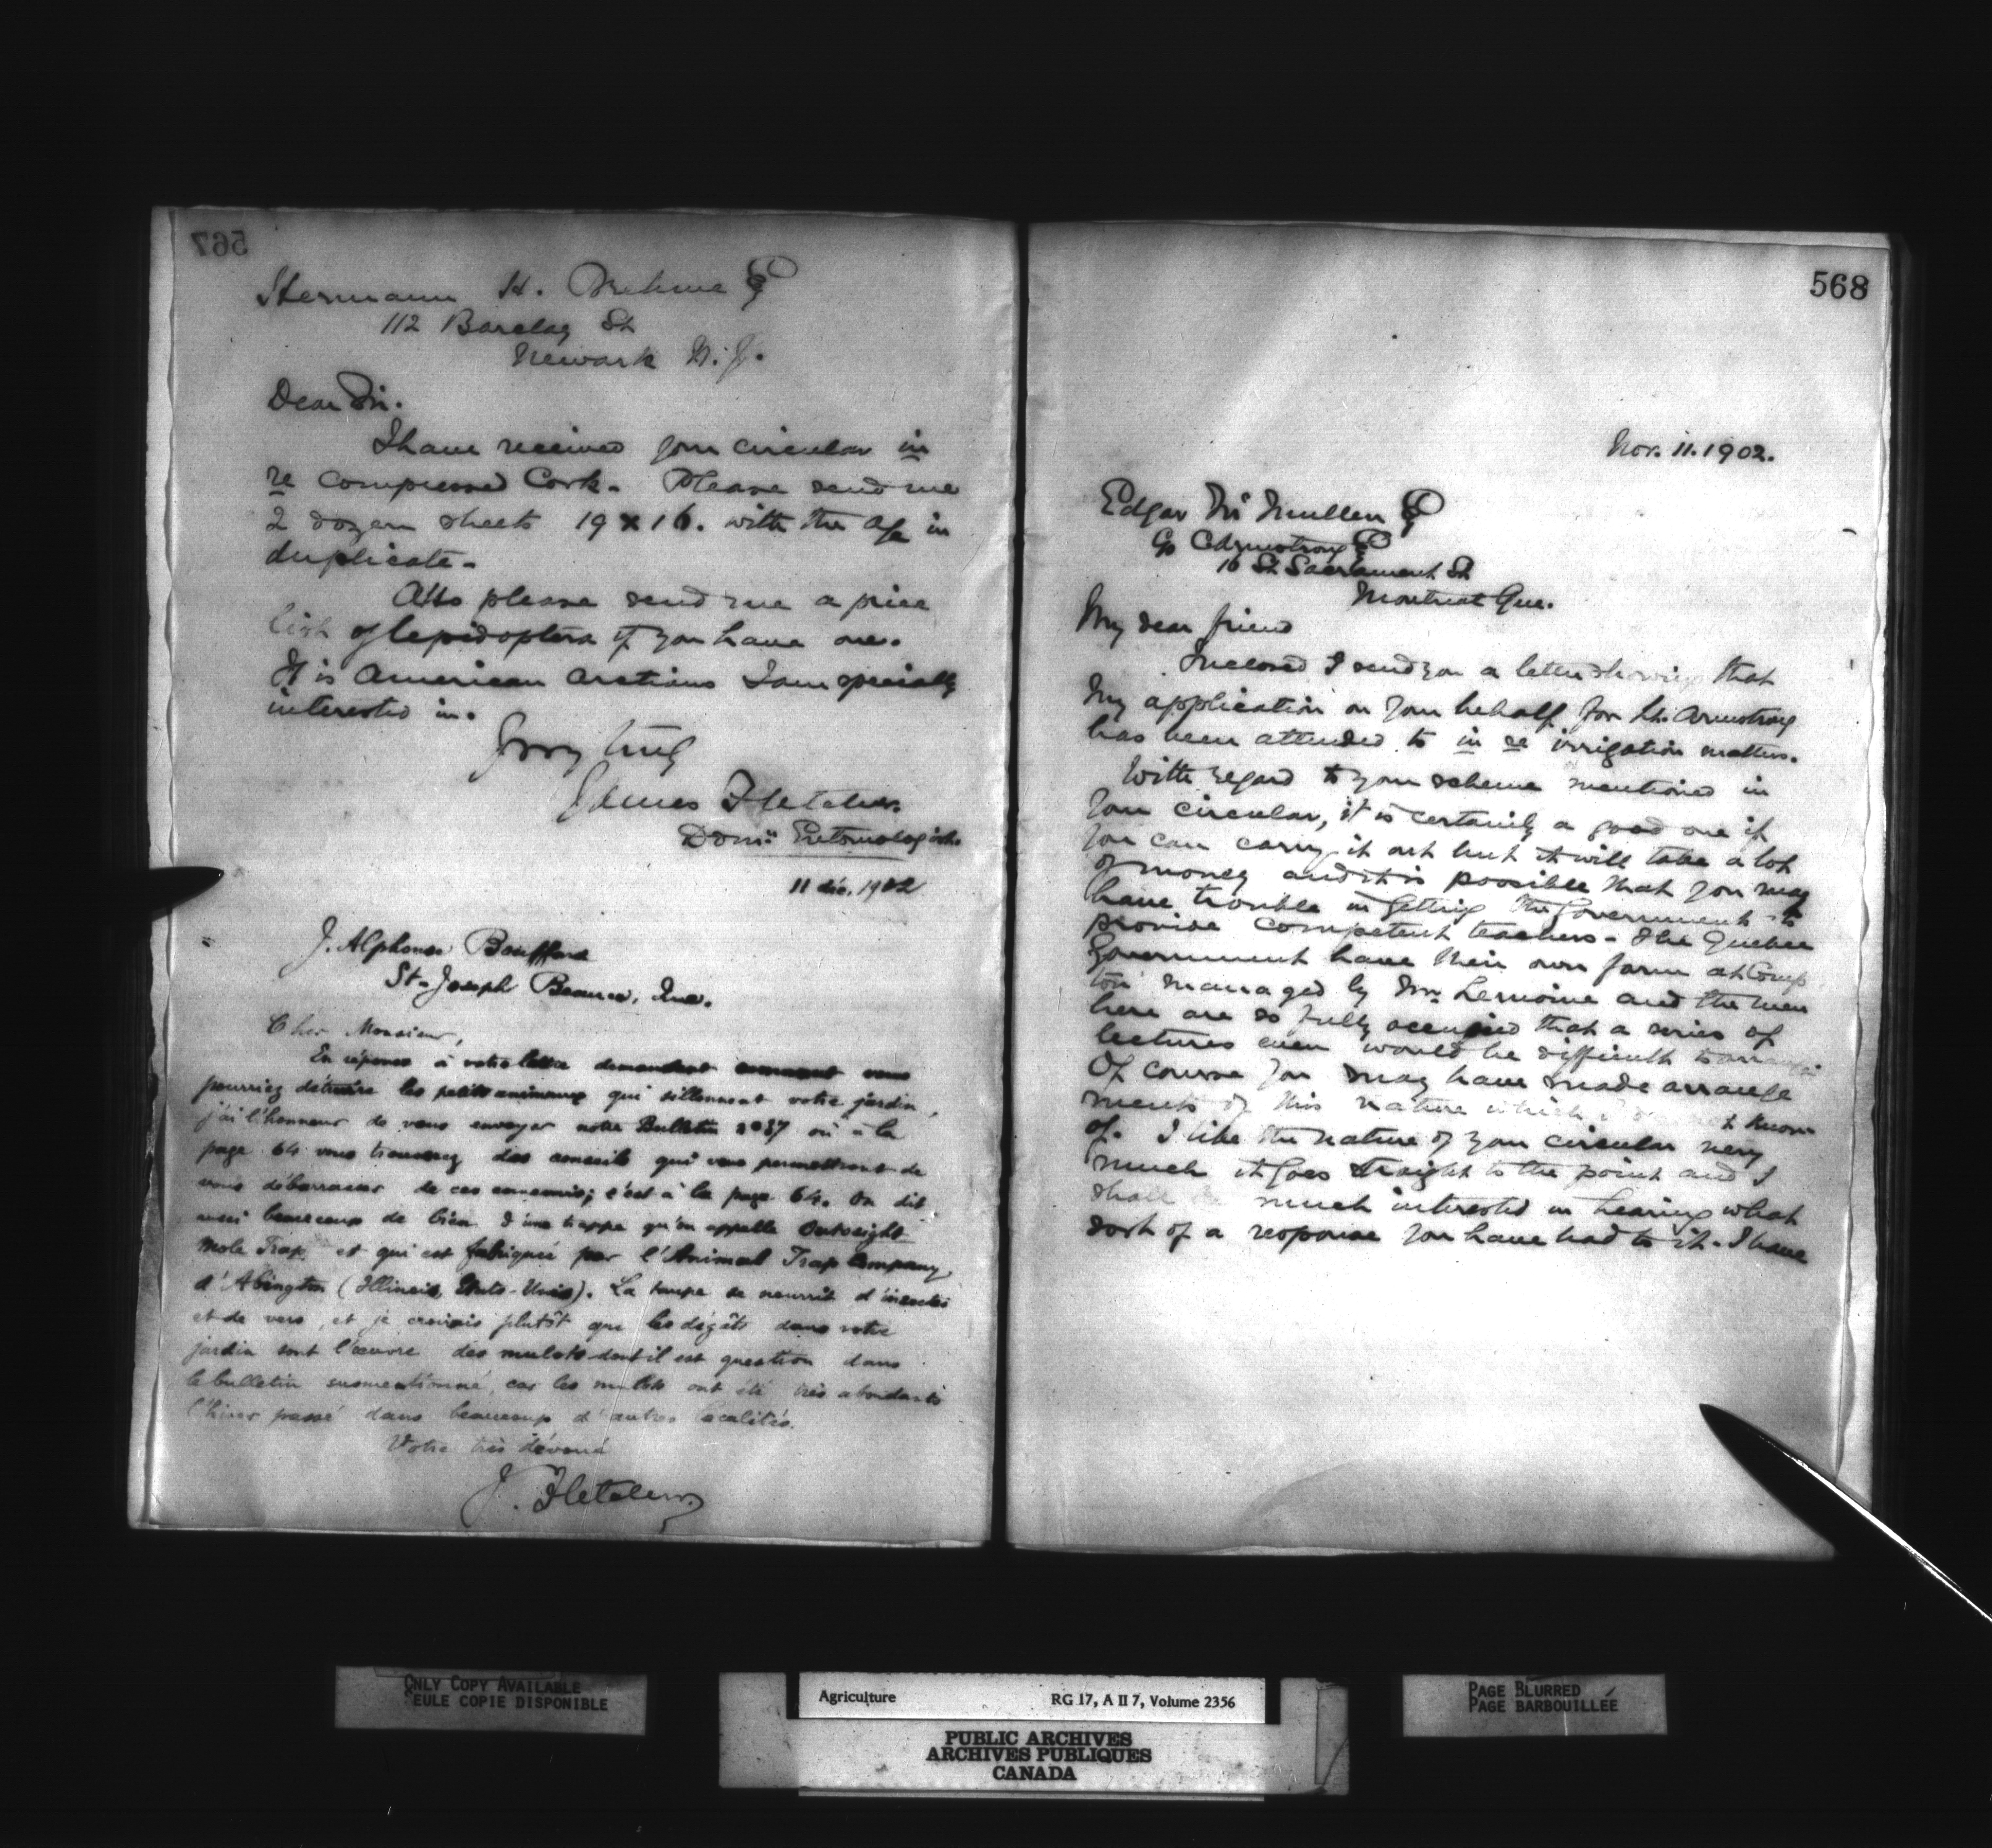 567
Hermann H. Brehme Esq
112 Barclay St
Newark N.J.
Dear Sir.
I have received your circular in
re compressed Cork. Please send me
2 dozen sheets 19 x 16. with the a/c in
duplicate.
Also please send me a price
list of lepidoptera if you have one.
It is American arctians I am specially
interested in.
Yours truly
James Fletcher.
Domn Entomologist.
11 déc. 1902
J. Alphonse Bouffard
St-Joseph Beauce, Que.
Cher Monsieur,
En réponse à votre lettre demandant comment vous
pourriez détruire les petits animaux qui sillonnent votre jardin,
j'ai l'honneur de vous envoyer notre Bulletin no 37 où à la
page 64 vous trouverez des conseils qui vous permettront de
vous débarrasser de ces ennemis; c'est à la page 64. On dit
aussi beaucoup de bien d'une trappe qu'on appelle Outosight
Mole Trap, et qui est fabriquée par l'Animal Trap Company,
d'Abingdon (Illinois, Etats-Unis). La taupe se nourrit d'insectes
et de vers, et je croirais plutôt que les dégâts dans votre
jardin sont l'œuvre des mulots dont il est question dans
le bulletin susmentionné, car les mulots ont été très abondants
l'hiver passé dans beaucoup d'autres localités.
Votre très dévoué
J. Fletcher.
568
Nov. 11. 1902.
Edgar McMullen Esq
c/o C Armstrong Esq
16 St Sacrament St
Montreal Que.
My dear friend
Inclosed I send you a letter showing that
my application on your behalf for Mr. Armstrong
has been attended to in re irrigation matters.
With regard to your scheme mentioned in
your circular, it is certainly a good one if
you can carry it out but it will take a lot
of money and it is possible that you may
have trouble in getting the Government to
provide competent teachers. The Quebec
Government have their own farm at Comp
ton managed by Mr. Lemoine and the men
here are so fully occupied that a series of
lectures even would be difficult to arrange
Of course you may have made arrange
ments of this nature which I do not know
of. I like the nature of your circular very
much it goes straight to the point and I
shall be much interested in hearing what
sort of a response you have had to it. I have
ONLY COPY AVAILABLE
SEULE COPIE DISPONIBLE
Agriculture RG 17, A II 7, Volume 2356
PUBLIC ARCHIVES
ARCHIVES PUBLIQUES
CANADA
PAGE BLURRED
PAGE BARBOUILLÉE